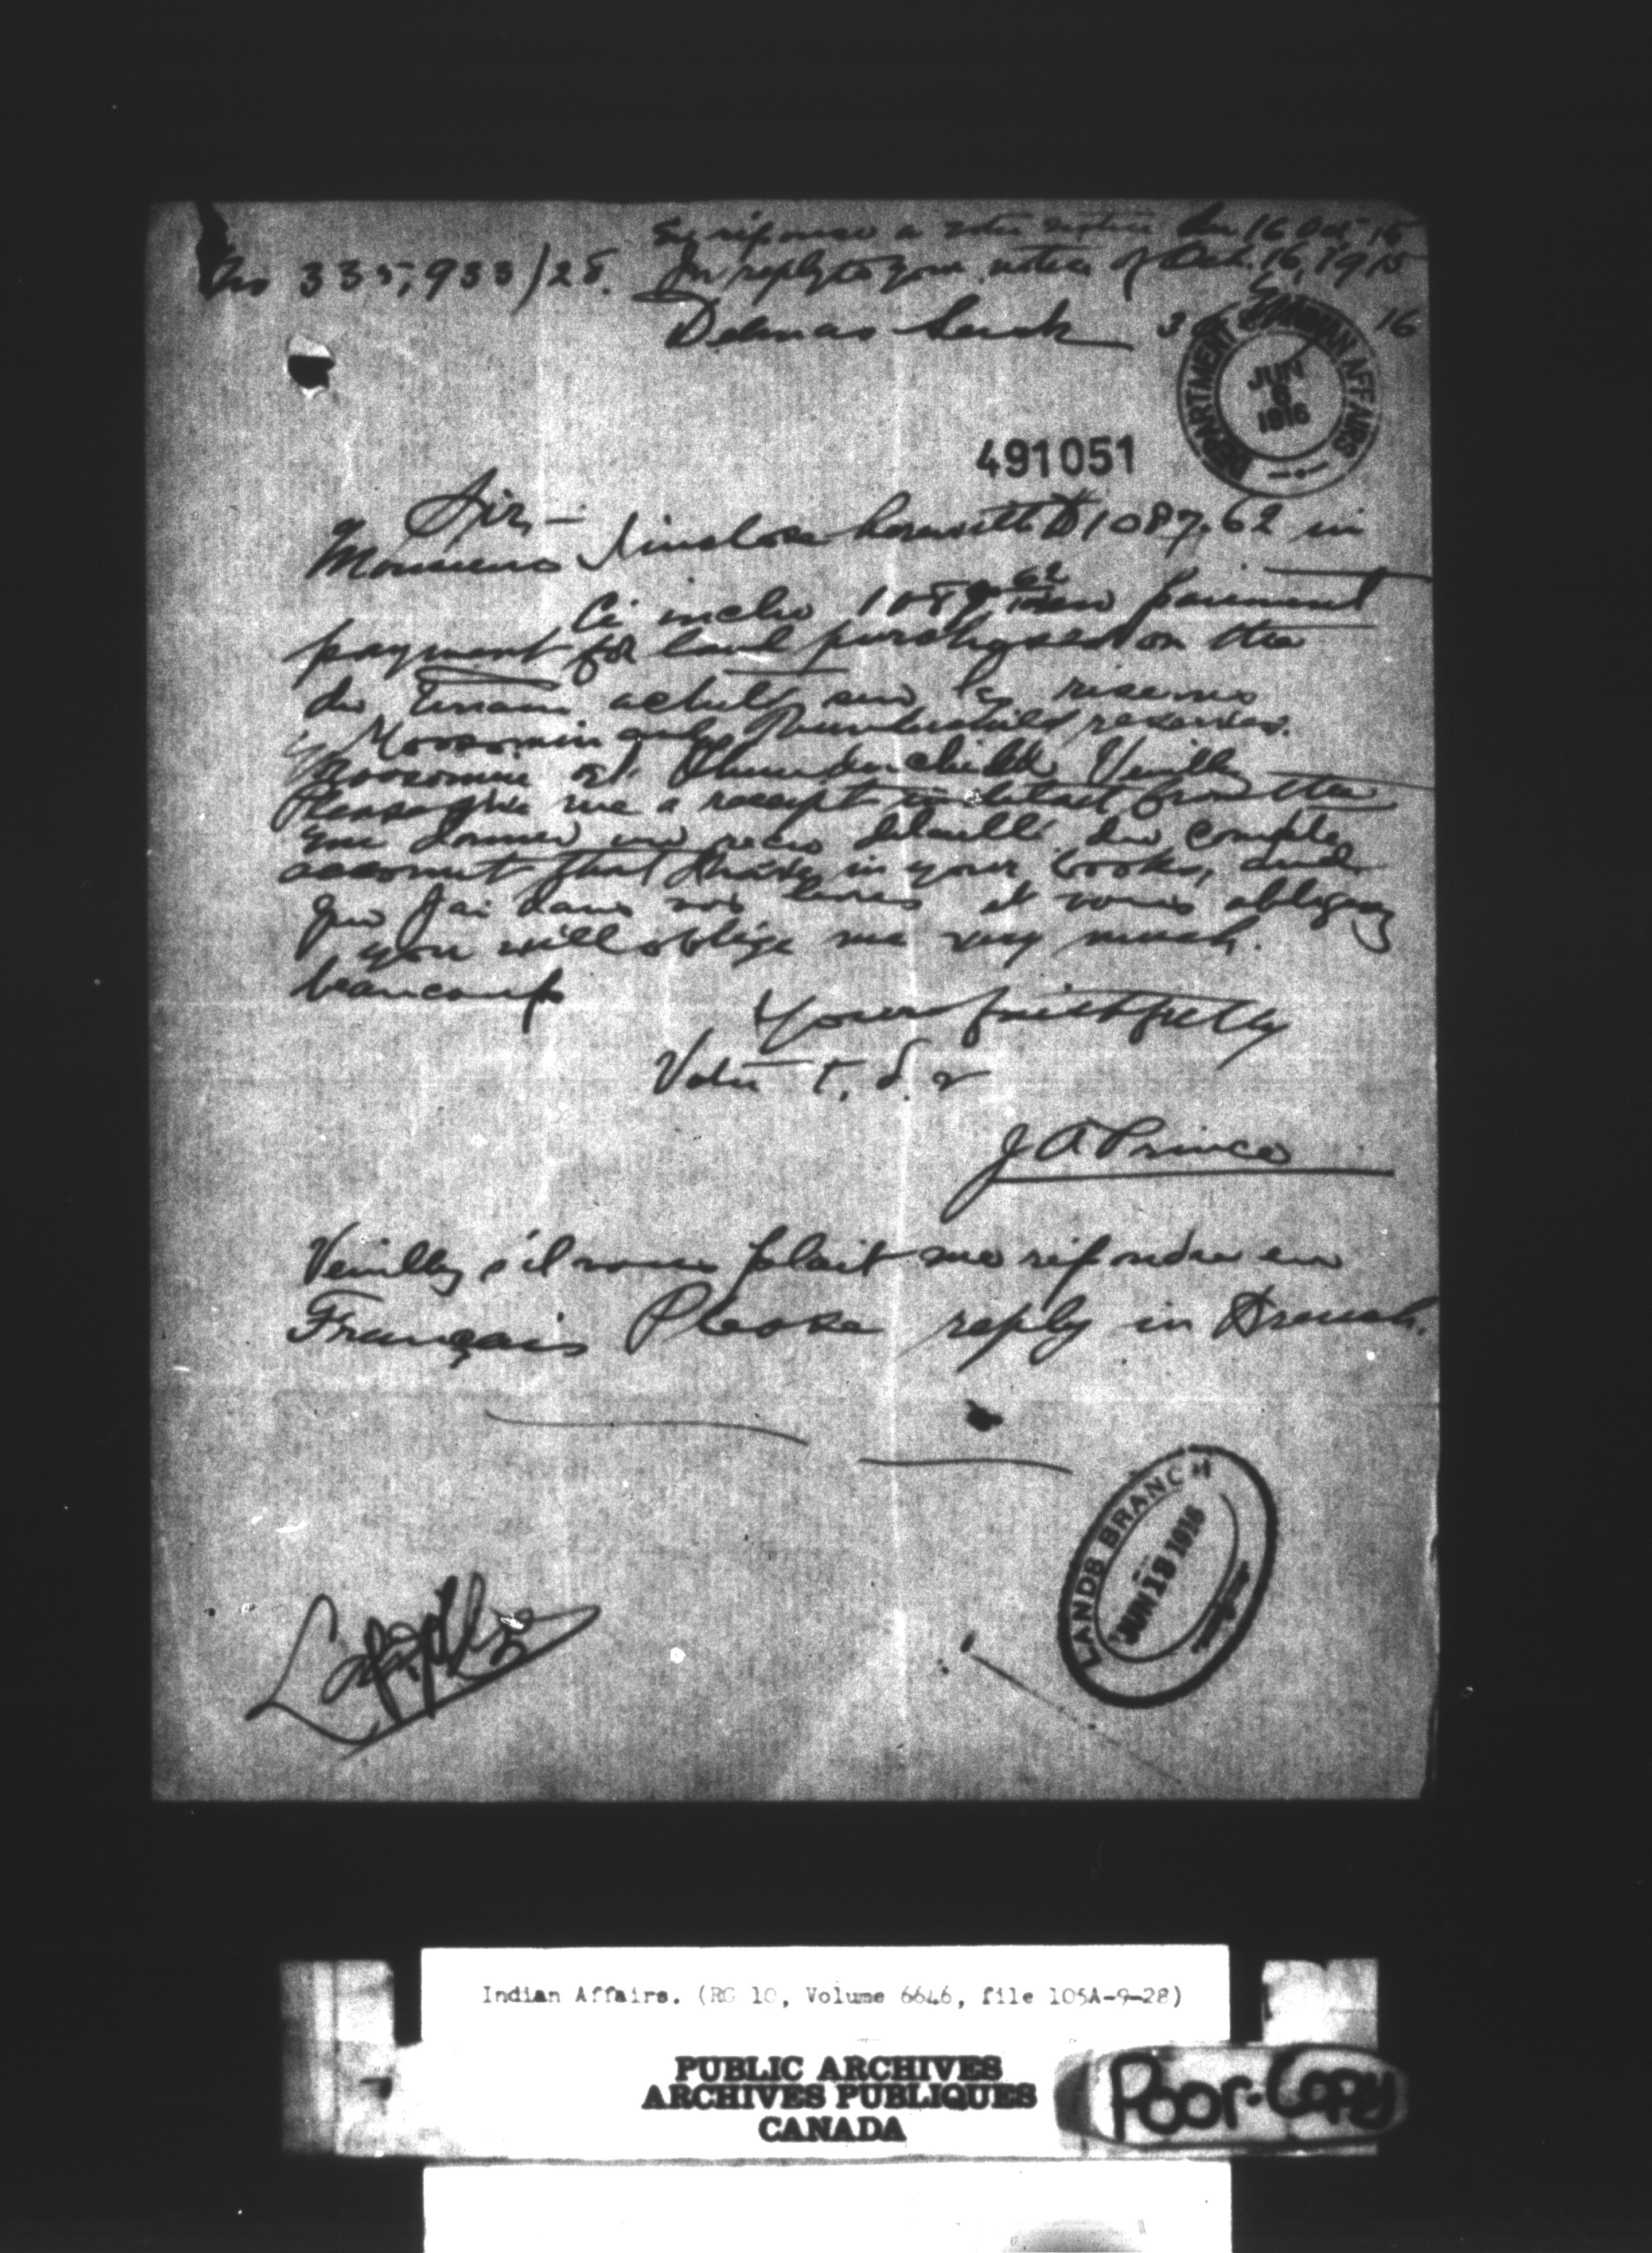 En réponse a votre notice du 16 Oct 15
No 335,933/28. In reply to your notice of Oct. 16, 1915
Delmas Sask 3 16
DEPARTMENT OF INDIAN AFFAIRS
JUN
6
1916
491051
Sir,—
I inclose herewith $1087.62 in
Monsieur
Ci inclus 1087 62/100 en paiement
payment for land purchased on the
du terrain acheté sur les reserves
Moosomin and Thunderchild reserves.
Moosomin et Thunderchild Veuillez
Please give me a receipt in detail from the
me donner un recu détaillé du compte
account that I have in your books, and
que J'ai dans vos livres et vous obligerez
you will oblige me very much.
beaucoup
Yours faithfully
Votre T. d. v
J A Prince
Veuillez s'il vous plait me répondre en
Français Please reply in French.
LANDS BRANCH
JUN 13 1916
Indian Affairs. (RG 10, Volume 6646, file 105A-9-28)
PUBLIC ARCHIVES
ARCHIVES PUBLIQUES
CANADA
Poor-Copy